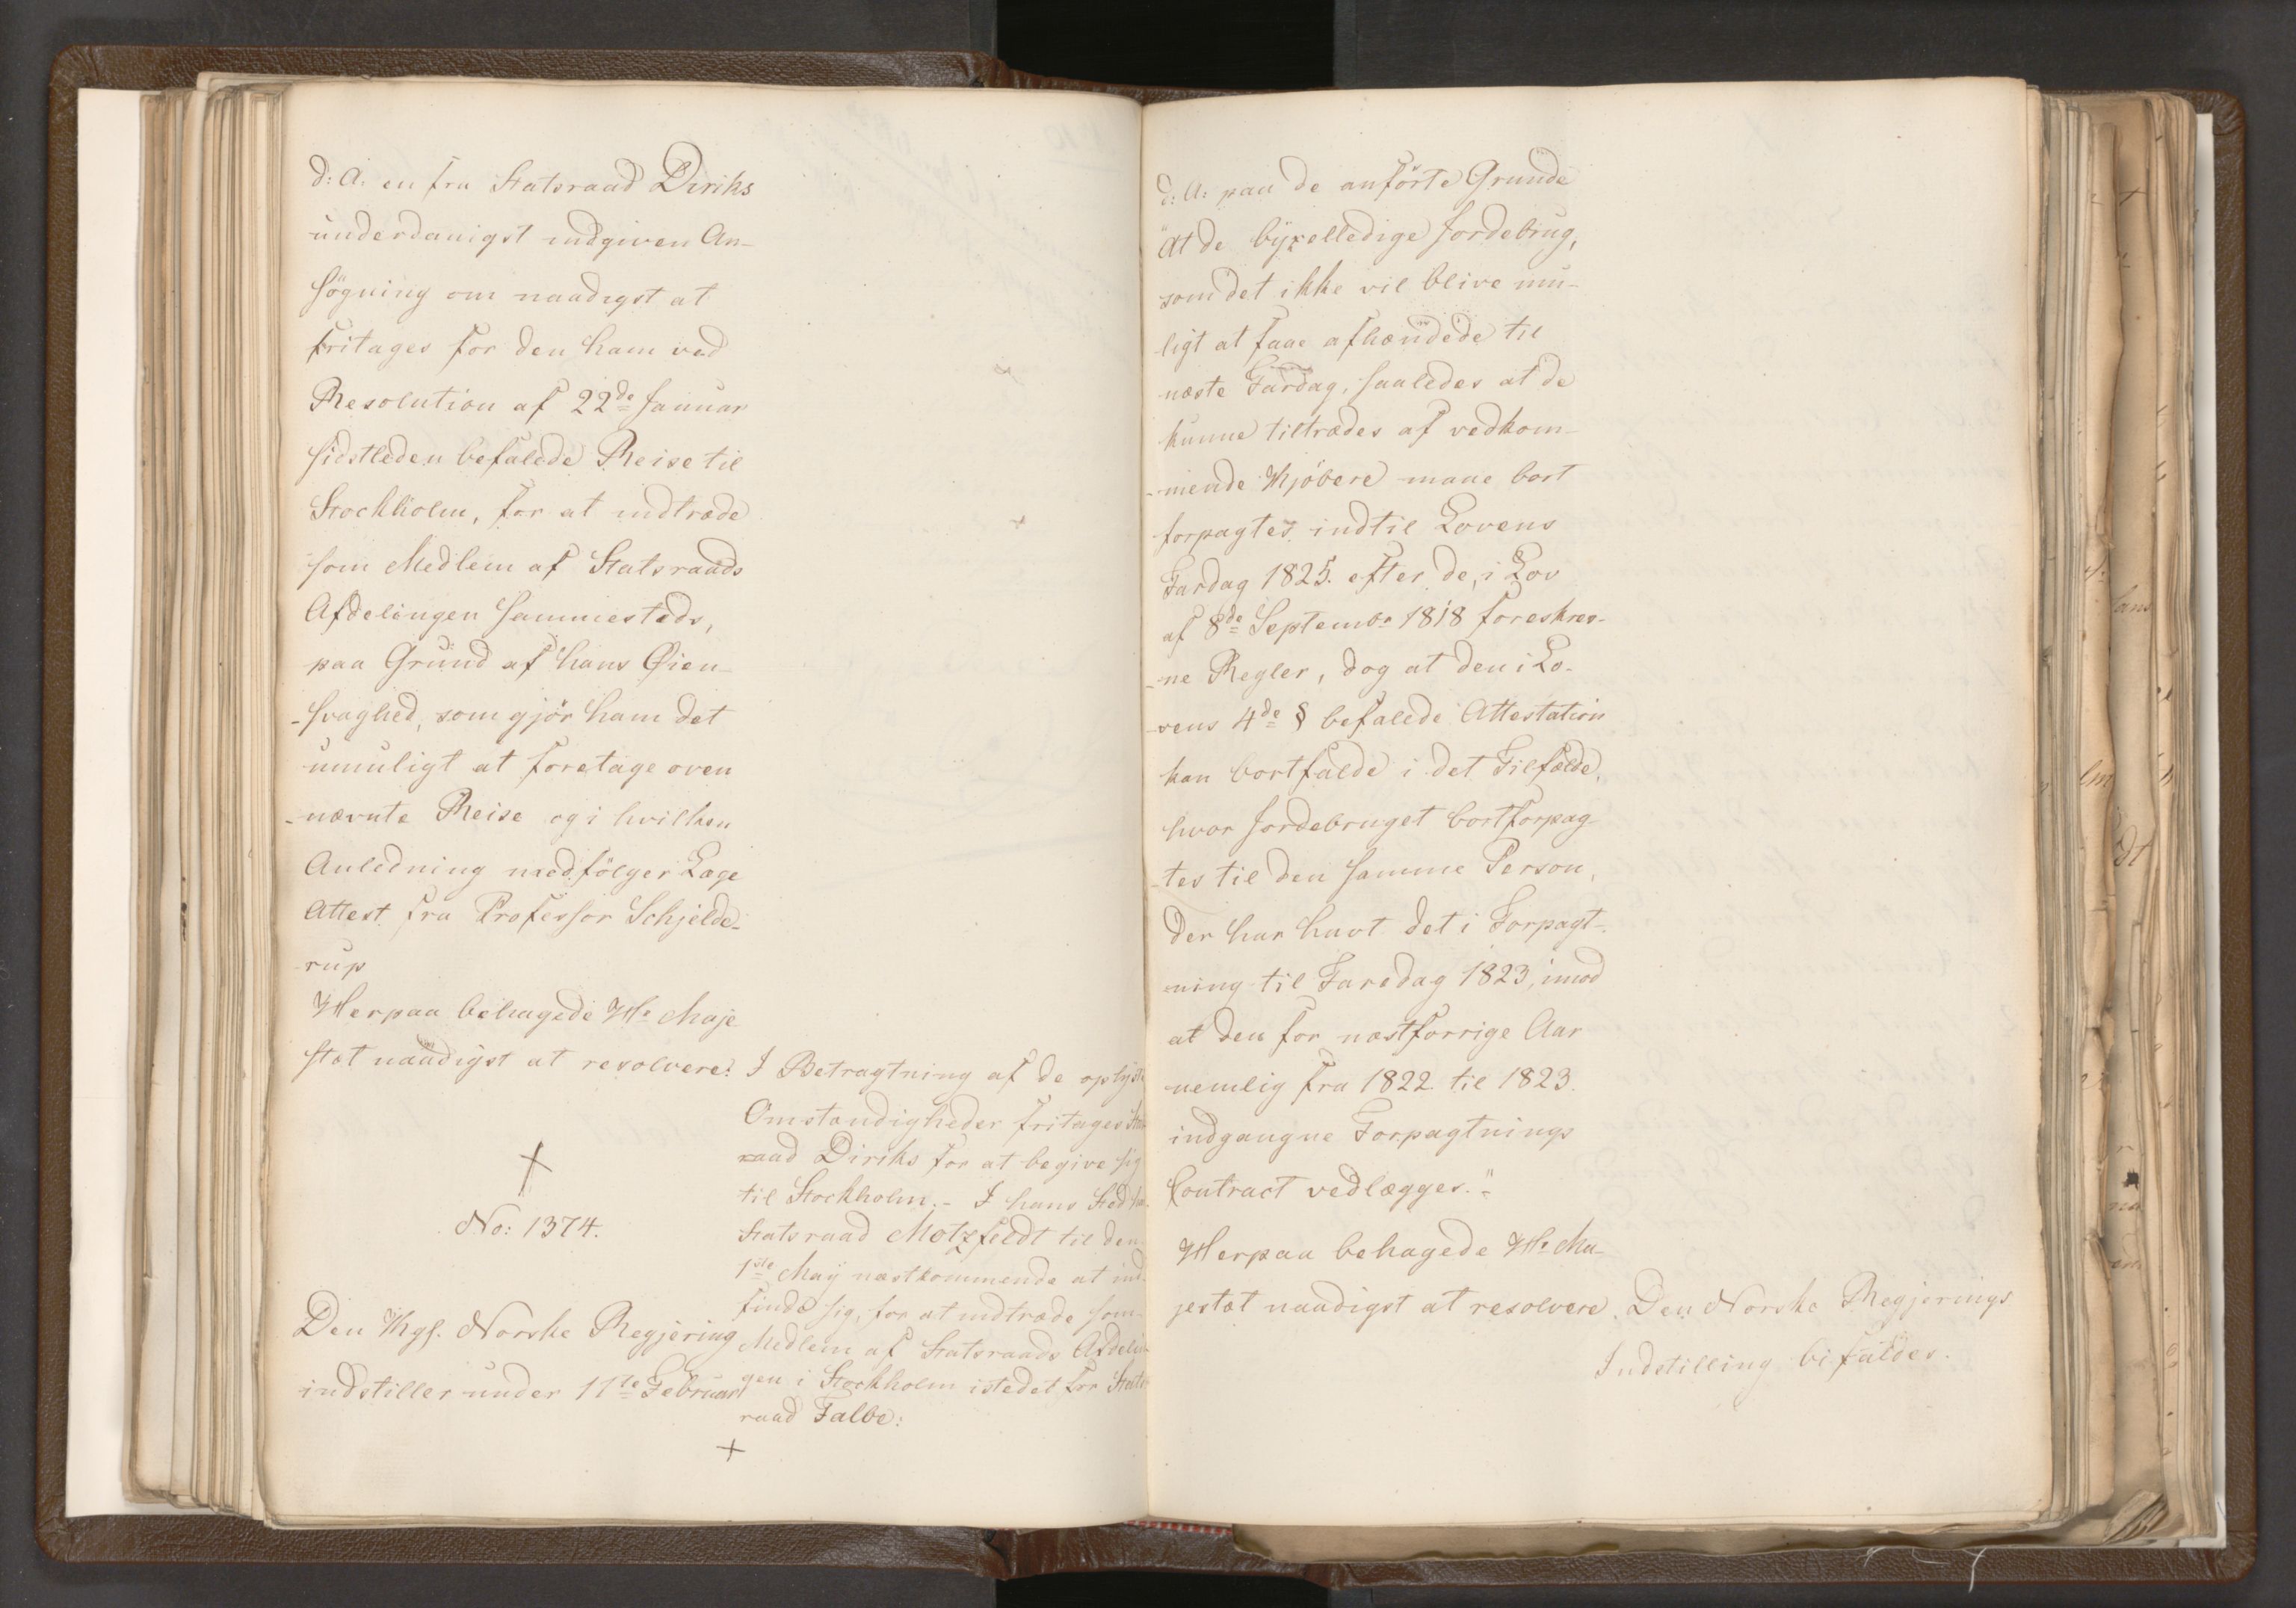 d: A: en fra Statsraad Diriks
underdanigst indgiven An-
søgning om naadigst at
fritages for den ham ved
Resolution af 22de Januar
sidstleden befalede Reise til
Stockholm, for at indtræde
som Medlem af Statsraads
Afdelingen sammesteds,
paa Grund af hans Øien-
-svaghed, som gjør ham det
umuligt at foretage oven
-nævnte Reise og i hvilken
Anledning medfølger Læge
Attest fra Professor Schjelde-
rup
Herpaa behagede Hs Maje
stæt naadigst at resolvere:
I Betragtning af de oplyste
Omstændigheder fritages
raad Diriks for at begive sig
til Stockholm. - I hans Sted
Statsraad Motzfeldt til den
1ste May næstkommende at ind-
finde sig, for at indtræde som
Medlem af Statsraads Afdelin
gen i Stockholm istedet for Stats
raad Falbe:
No: 1374.
Den Kgl. Norske Regjering
indstiller under 11te Februar
d: A: paa de anførte Grunde
"At de byxelledige Jordebrug,
som det ikke vil blive mu-
ligt at faae afhændede til
næste Fardag, saaledes at de
kunne tiltrædes af vedkom-
-mende Kjøbere maae bort
forpagtes indtil Lovens
Fardag 1825. efter de, i Lov
af 8de Septembr 1818 foreskrev-
-ne Regler, dog at den i Lo-
-vens 4de § befalede Attestation
kan bortfalde i det Tilfælde,
hvor Jordebruget bortforpag-
-tes til den samme Person,
der har havt det i Forpagt-
ning til Faredag 1823, imod
at den for næstforrige Aar
nemlig fra 1822 til 1823.
indgangne Forpagtnings
Contract vedlægges."
Herpaa behagede Hs Ma-
jestæt naadigst at resolvere. Den Norske Regjerings
Indstilling bifaldes.